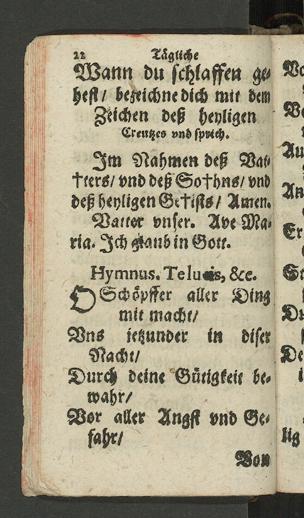 22 Tägliche
Wann du schlaffen ge-
hest/ bezeichne dich mit dem
Zeichen deß heyligen
Creutzes vnd sprich.
Im Nahmen deß Vat-
†ters/ vnd deß So†hns/ vnd
deß heyligen Ge†ists/ Amen.
Vatter vnser. Ave Ma-
ria. Ich glaub in Gott.
Hymnus. Te lucis, &c.
O Schöpffer aller Ding
mit macht/
Vns jetzunder in diser
Nacht/
Durch deine Gütigkeit be-
wahr/
Vor aller Angst vnd Ge-
fahr/
Von